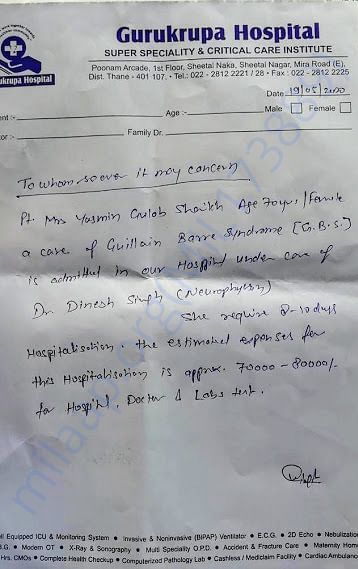 Gurukrupa Hospital
SUPER SPECIALITY & CRITICAL CARE INSTITUTE
Poonam Arcade, 1st Floor, Sheetal Naka, Sheetal Nagar, Mira Road (E),
Dist. Thane - 401 107. • Tel.: 022 - 2812 2221 / 28 • Fax : 022 - 2812 2225
ukrupa Hospital
Date 19/05/
ent :- Age :- Male Female
tor :- Family Dr.
To whom so ever it may concern
Pt. Mrs Yasmin Gulab Shaikh Age 70yrs/Female
a case of Guillain Barre Syndrome [G.B.S.]
is admitted in our Hospital under care of
Dr. Dinesh Singh (Neurophysn)
She require 8-10 days
Hospitalisation. the estimated expenses for
this Hospitalisation is approx. 70000 - 80000/-
for Hospital, Doctor & Labs test.
ll Equipped ICU & Monitoring System • Invasive & Noninvasive (BIPAP) Ventilator • E.C.G. • 2D Echo • Nebulization
.G. • Modern OT • X-Ray & Sonography • Multi Speciality O.P.D. • Accident & Fracture Care • Maternity Home
Hrs. CMOs • Complete Health Checkup • Computerized Pathology Lab • Cashless / Mediclaim Facility • Cardiac Ambulance